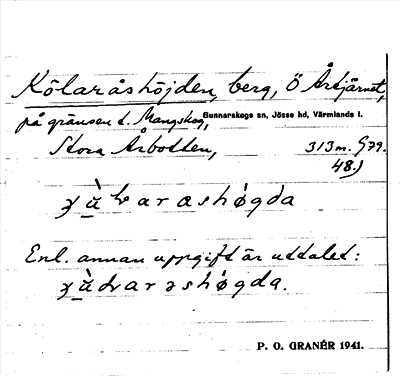 Kölaråshöjden, berg, Ö Årtjärnet,
på gränsen t. Mangskog, Gunnarskogs sn, Jösse hd, Värmlands l.
Stora Årbotten, 313 m. G79.
48.)
Enl. annan uppgift är uttalet:
P. O. GRANÉR 1941.